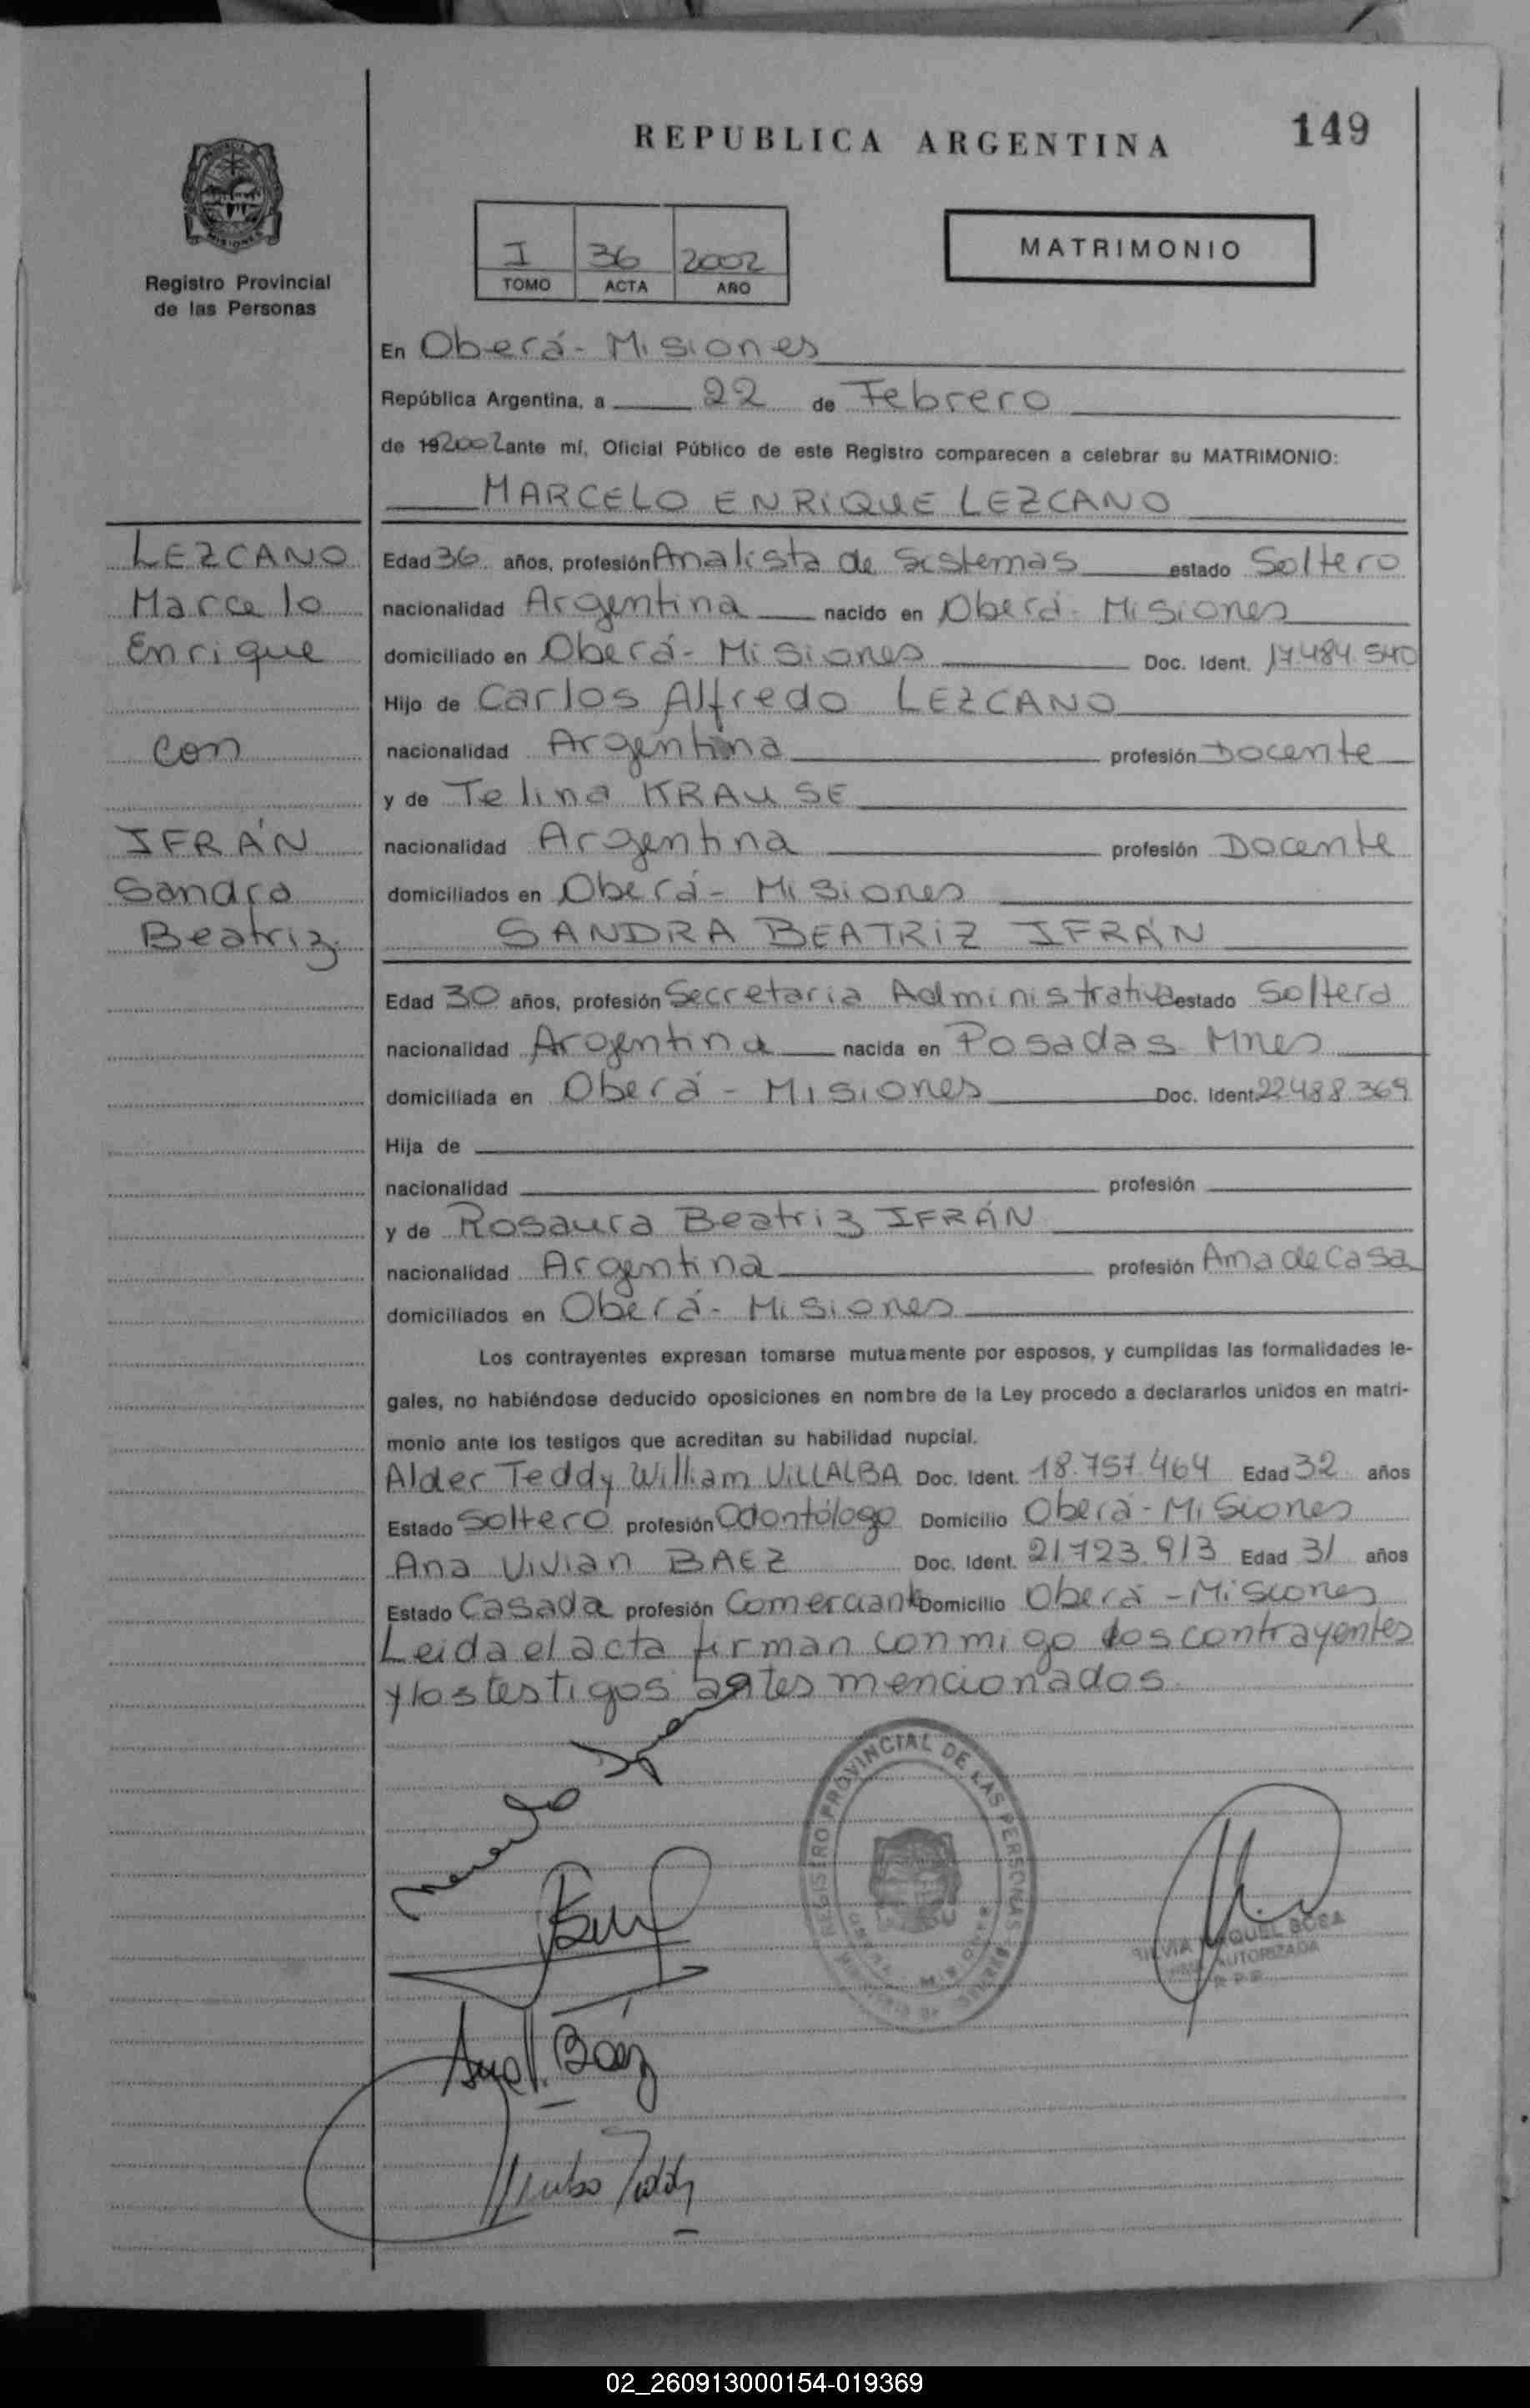 REPUBLICA ARGENTINA
149
MISIONES
Registro Provincial
de las Personas
I 36 2002
TOMO ACTA AÑO
MATRIMONIO
En Oberá - Misiones
República Argentina, a 22 de Febrero
de 192002 ante mí, Oficial Público de este Registro comparecen a celebrar su MATRIMONIO:
MARCELO ENRIQUE LEZCANO
LEZCANO
Marcelo
Enrique
con
IFRÁN
Sandra
Beatriz
Edad 36 años, profesión Analista de Sistemas estado Soltero
nacionalidad Argentina nacido en Oberá - Misiones
domiciliado en Oberá - Misiones Doc. Ident. 17.484.540
Hijo de Carlos Alfredo LEZCANO
nacionalidad Argentina profesión Docente
y de Telina KRAUSE
nacionalidad Argentina profesión Docente
domiciliados en Oberá - Misiones
SANDRA BEATRIZ IFRÁN
Edad 30 años, profesión Secretaria Administrativa estado Soltera
nacionalidad Argentina nacida en Posadas Mnes
domiciliada en Oberá - Misiones Doc. Ident. 22.488.369
Hija de
nacionalidad profesión
y de Rosaura Beatriz IFRÁN
nacionalidad Argentina profesión Ama de Casa
domiciliados en Oberá - Misiones
Los contrayentes expresan tomarse mutuamente por esposos, y cumplidas las formalidades le-
gales, no habiéndose deducido oposiciones en nombre de la Ley procedo a declararlos unidos en matri-
monio ante los testigos que acreditan su habilidad nupcial.
Alder Teddy William VILLALBA Doc. Ident. 18.757.464 Edad 32 años
Estado Soltero profesión Odontólogo Domicilio Oberá - Misiones
Ana Vivian BAEZ Doc. Ident. 21.723.913 Edad 31 años
Estado Casada profesión Comerciante Domicilio Oberá - Misiones
Leida el acta firman conmigo los contrayentes
y los testigos antes mencionados.
REGISTRO PROVINCIAL DE LAS PERSONAS
SILVIA RAQUEL SOSA
AUTORIZADA
Ana V. Báez
Teddy
02_260913000154-019369